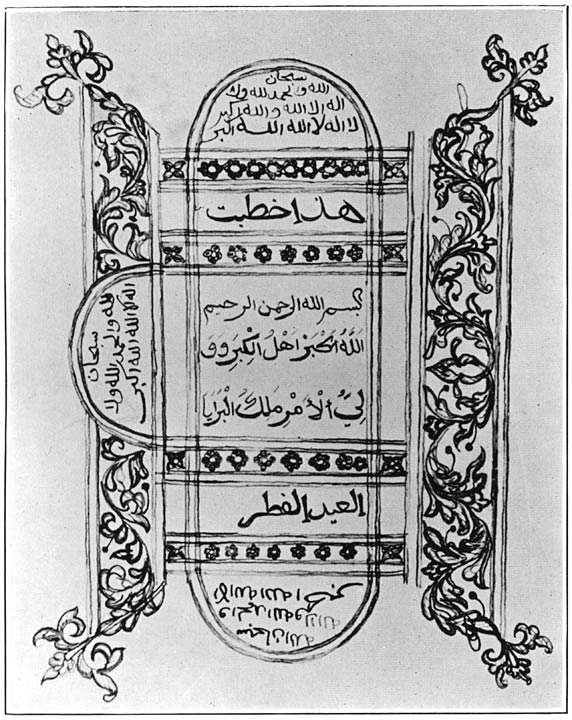 سبحان
الله والحمد لله ولا
اله الا الله والله اكبر
لا اله لا الله الله اكبر
هذا خطبت
بسم الله الرحمن الرحيم
اَللّٰهُ اكبر اَهْلُ الْكِبْرِ وَوَ
لِيُّ الْأَمْرِ مَلِكُ الْبَرَايَا
العيد الفطر
سبحان
الله والحمد لله ولا
اله الا الله الله اكبر
الا الله الله
والحمد لله
سبحان الله